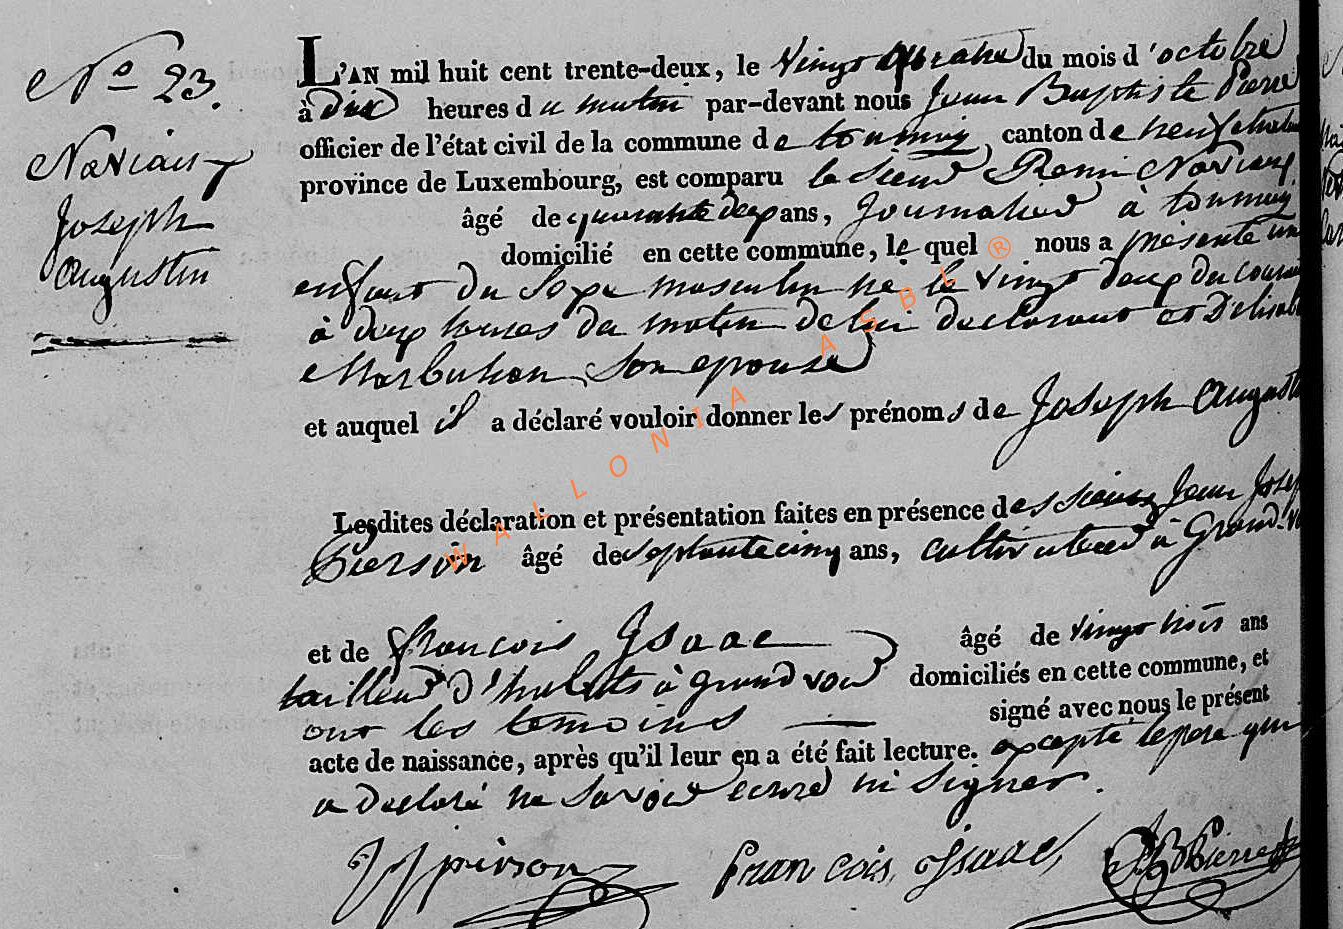 N° 23.
Naviaux
Joseph
Augustin
L'AN mil huit cent trente-deux, le vingt quatre du mois d'octobre
à dix heures du matin par-devant nous Jean Baptiste Pierre
officier de l'état civil de la commune de tournay, canton de neufchateau
province de Luxembourg, est comparu le sieur Remi Naviaux
âgé de quarante deux ans, Journalier à tournay
domicilié en cette commune, le quel nous a présenté un
enfant du sexe masculin né le vingt deux du courant
à deux heures du matin de lui declarant et D'elisab
Marbuhan son epouse
et auquel il a déclaré vouloir donner les prénoms de Joseph August
Lesdites déclaration et présentation faites en présence des sieurs Jean Josep
Pierson âgé de septante cinq ans, cultivateur à Grand-v
et de françois Isaac âgé de vingt trois ans
tailleur d'habits à grand voir domiciliés en cette commune, et
ont les temoins signé avec nous le présent
acte de naissance, après qu'il leur en a été fait lecture. excepté le pere qui
a declaré ne savoir ecrire ni signer.
JJ pierson François Isaac JB Pierre
WALLONIA ASBL ®